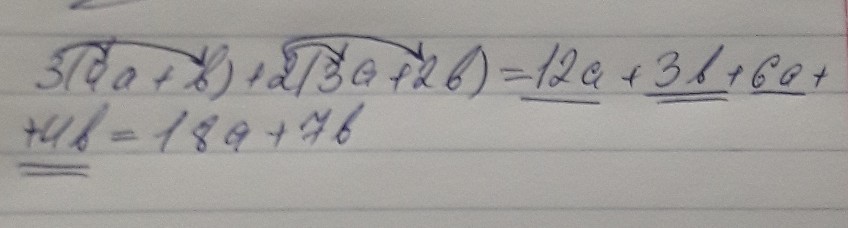 3(4a + b) + 2(3a + 2b) = 12a + 3b + 6a +
+4b = 18a + 7b